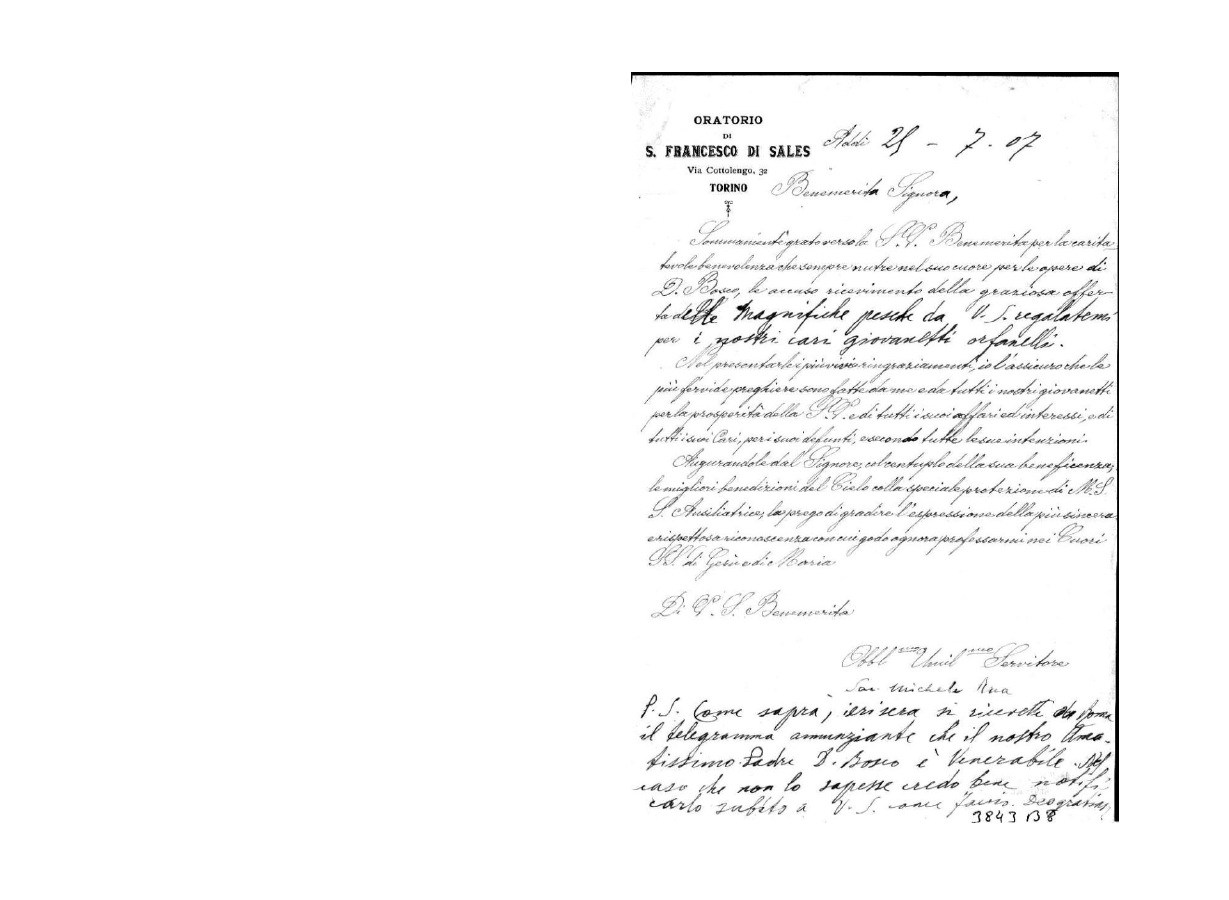 ORATORIO
DI
S. FRANCESCO DI SALES
Via Cottolengo, 32
TORINO
Addì 25 - 7 - 07
Benemerita Signora,
Sommamente grato verso la S. V. Benemerita per la carita-
tevole benevolenza che sempre nutre nel suo cuore per le opere di
D. Bosco, le accuso ricevimento della graziosa offer-
ta delle Magnifiche pesche da V. S. regalatemi
per i nostri cari giovanetti orfanelli.
Nel presentarle i più vivi ringraziamenti, io l'assicuro che le
più fervide preghiere sono fatte da me e da tutti i nostri giovanetti
per la prosperità della S. V. e di tutti i suoi affari ed interessi, e di
tutti i suoi Cari, per i suoi defunti, e secondo tutte le sue intenzioni.
Augurandole dal Signore, col centuplo della sua beneficenza,
le migliori benedizioni del Cielo colla speciale protezione di M. S.
S. Ausiliatrice, la prego di gradire l'espressione della più sincera
e rispettosa riconoscenza con cui godo ognora professarmi nei Cuori
SS. di Gesù e di Maria
Di V. S. Benemerita
Obbl.mo Umil.mo Servitore
Sac. Michele Rua
P. S. Come sopra, ierisera si ricevette da Roma
il telegramma annunziante che il nostro Ama-
tissimo Padre D. Bosco è Venerabile. Nel
caso che non lo sapesse credo bene notifi-
carlo subito a V. S. come Deogratias,
3843 B8